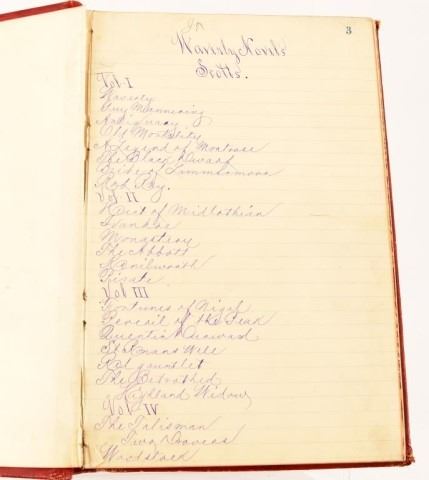 In
3
Waverly Novels
Scotts.
Vol I
Waverly
Guy Mannering
Antiquary
Old Mortality
A Legend of Montrose
The Black Dwarf
Bride of Lammermoor
Rob Roy.
Vol II
Heart of Midlothian
Ivanhoe
Monastery
The Abbott
Kenilworth
Pirate
Vol III
Fortunes of Nigel
Peveril of the Peak
Quentin Durward
St Ronans Well
Red gauntlet
The Betrothed
Highland Widow
Vol IV
The Talisman
Two Drovers
Woodstock